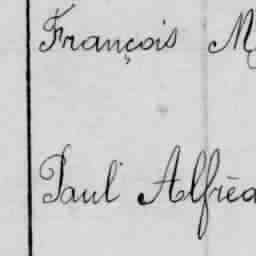 François M
Paul Alfred